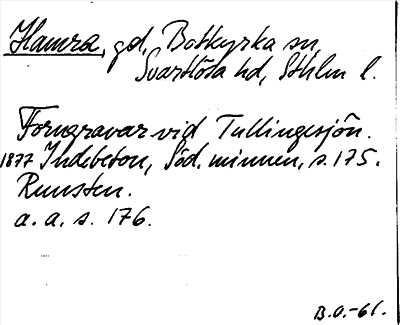 Hamra, gd, Botkyrka sn,
Svartlösa hd, Sthlm l.
Forngravar vid Tullingesjön.
1877 Indebetou, Söd. minnen, s. 175.
Runsten.
a. a. s. 176.
B.O.-61.